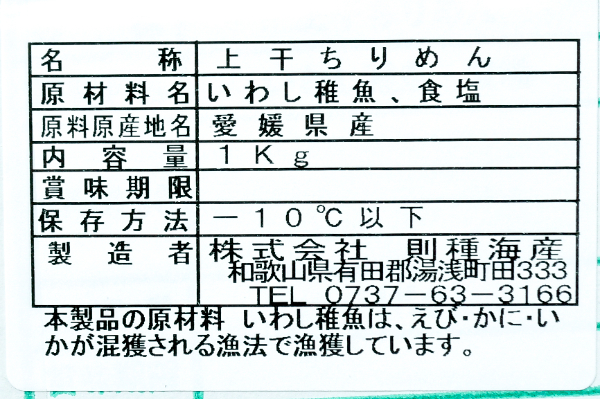 名称 上干ちりめん
原材料名 いわし稚魚、食塩
原料原産地名 愛媛県産
内容量 1Kg
賞味期限
保存方法 －10℃以下
製造者 株式会社 則種海産
和歌山県有田郡湯浅町田333
TEL 0737-63-3166
本製品の原材料 いわし稚魚は、えび・かに・い
かが混獲される漁法で漁獲しています。